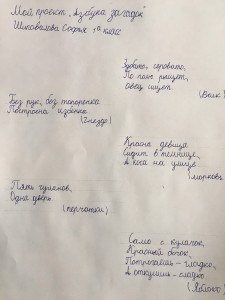 Мой проект „Азбука загадок"
Шиповалова Софья, 1а класс
Зубасто, серовато,
По полю рыщет,
Овец ищет
(Волк)
Без рук, без топоренка
Построена избенка
(Гнездо)
Красна девица
Сидит в темнице,
А коса на улице
(морковь)
Пять чуланов,
Одна дверь
(перчатки)
Само с кулачок,
Красный бочок,
Потрогаешь – гладко,
А откусишь – сладко
(Яблоко)